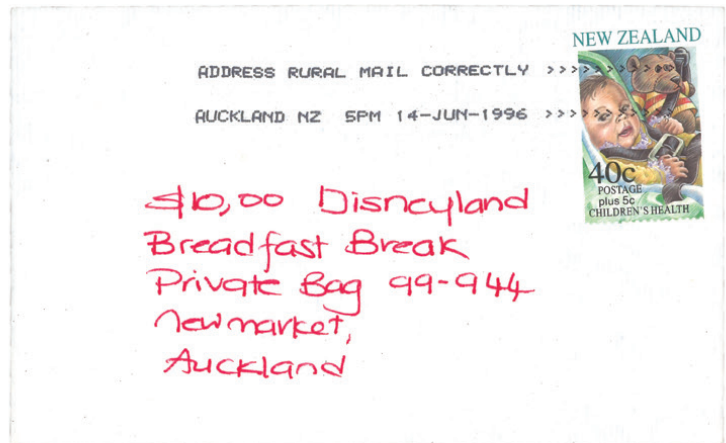 NEW ZEALAND
ADDRESS RURAL MAIL CORRECTLY >>>>>>>>>
AUCKLAND NZ 5PM 14-JUN-1996 >>>>>>>>>
40c
POSTAGE
plus 5c
CHILDREN'S HEALTH
$10,00 Disneyland
Breadfast Break
Private Bag 99-944
Newmarket,
Auckland